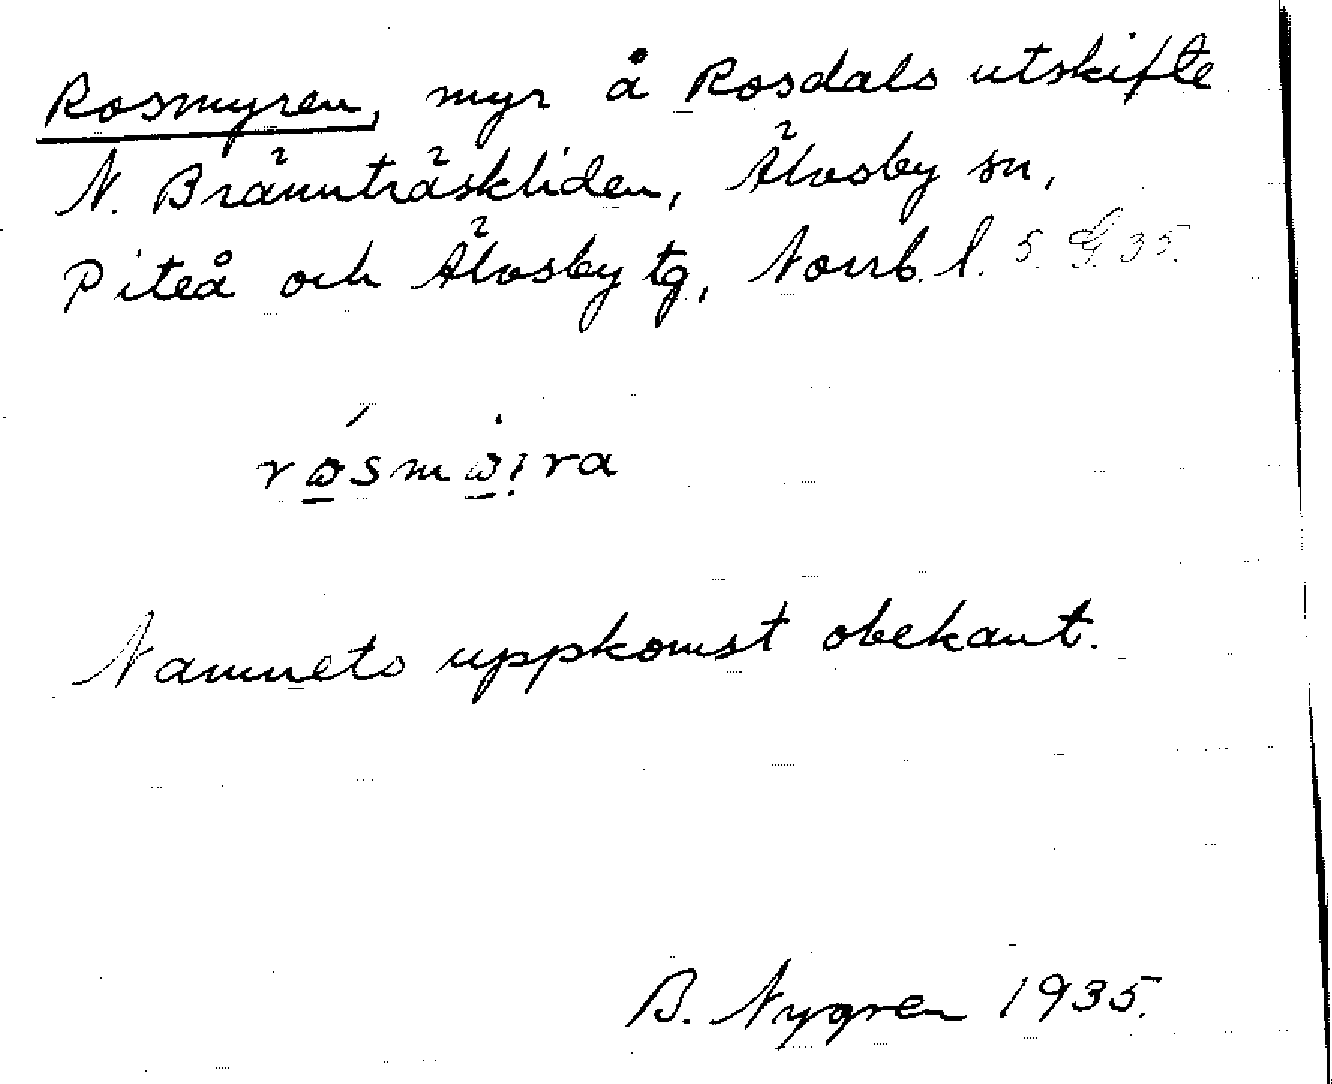 Rosmyren, myr å Rosdals utskifte
N. Brännträskliden, Älvsby sn,
Piteå och Älvsby tg, Norrb. l. 5. G. 35.
Namnets uppkomst obekant.
B. Nygren 1935.